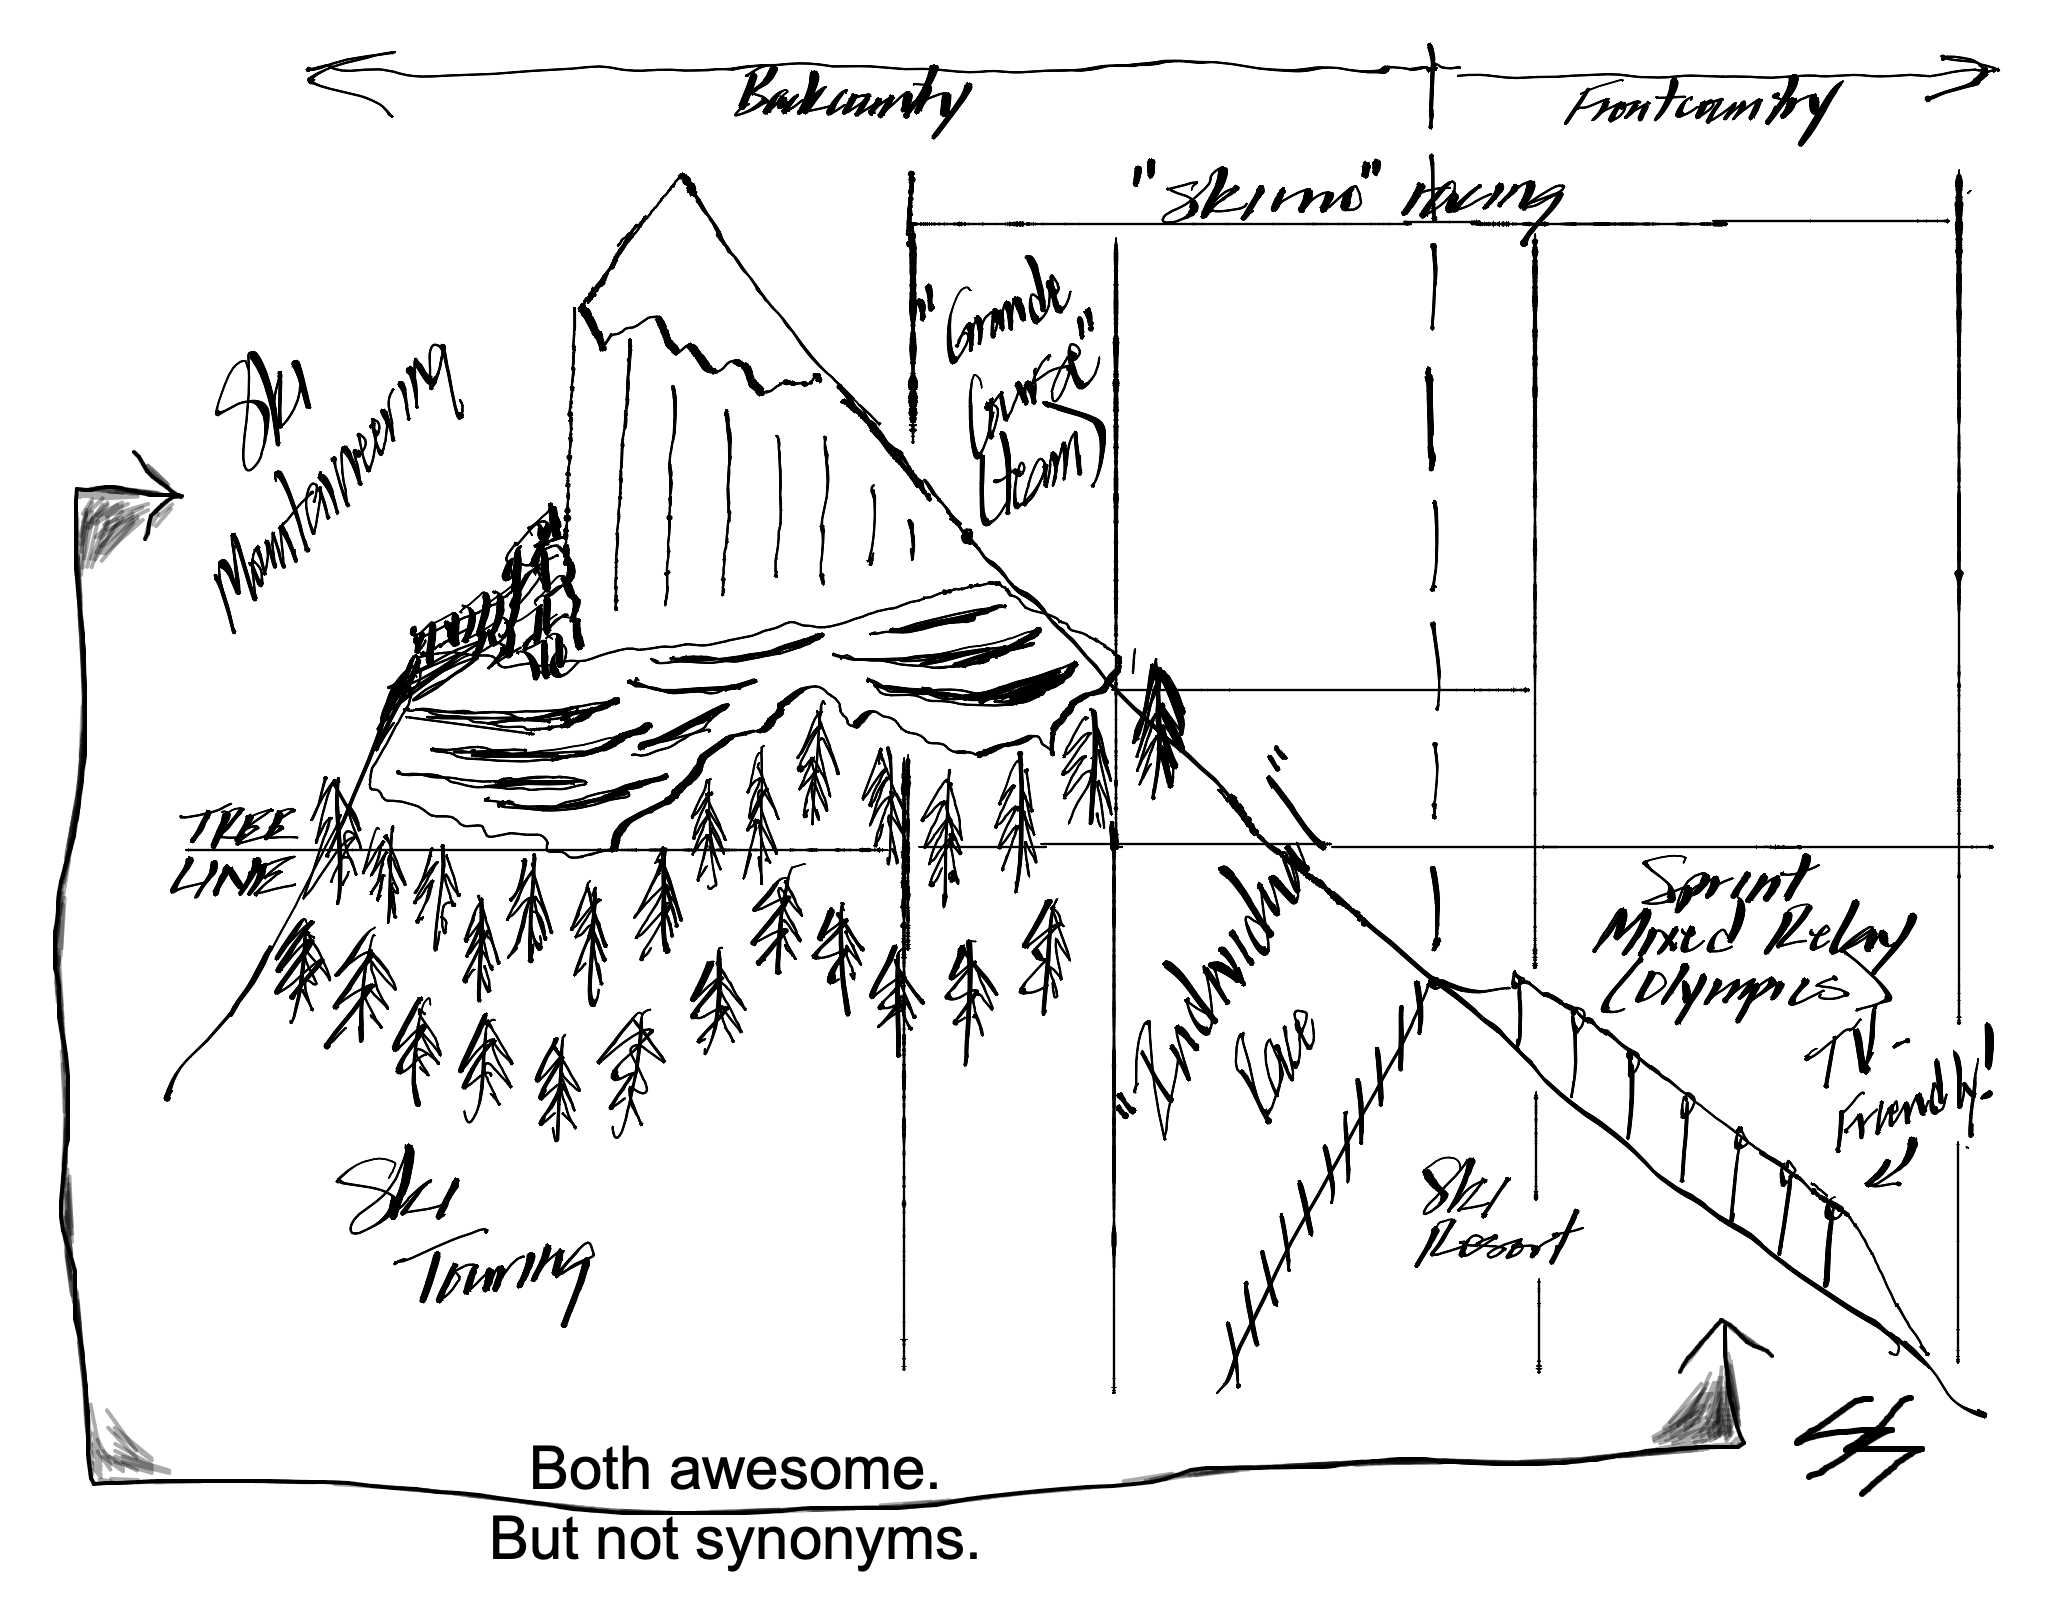 Backcountry
Frontcountry
"Skimo" racing
"Grande
Course"
(team)
Ski
Mountaineering
TREE
LINE
"Individual"
Race
Sprint
Mixed Relay
(Olympics)
TV-
Friendly!
Ski
Touring
Ski
Resort
Both awesome.
But not synonyms.